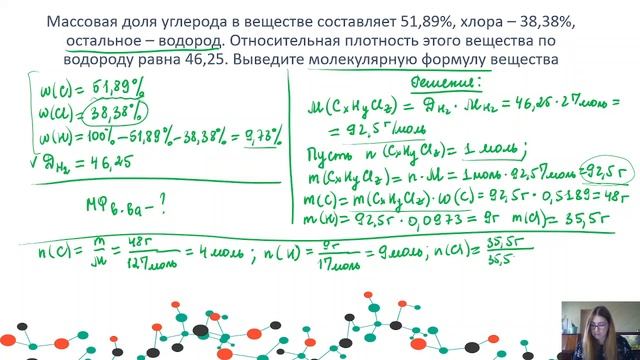 Массовая доля углерода в веществе составляет 51,89%, хлора – 38,38%,
остальное – водород. Относительная плотность этого вещества по
водороду равна 46,25. Выведите молекулярную формулу вещества
ω(C) = 51,89%
ω(Cl) = 38,38%
ω(H) = 100% - 51,89% - 38,38% = 9,73%
✓ D H₂ = 46,25
МФ в-ва - ?
Решение:
M(CxHyClz) = D H₂ · M H₂ = 46,25 · 2 г/моль =
= 92,5 г/моль
Пусть n(CxHyClz) = 1 моль;
m(CxHyClz) = n · M = 1 моль · 92,5 г/моль = 92,5 г
m(C) = m(CxHyClz) · ω(C) = 92,5г · 0,5189 = 48г
m(H) = 92,5г · 0,0973 = 9г m(Cl) = 35,5г
n(C) = m/M = 48г/12г/моль = 4 моль; n(H) = 9г/1г/моль = 9 моль; n(Cl) = 35,5г/35,5